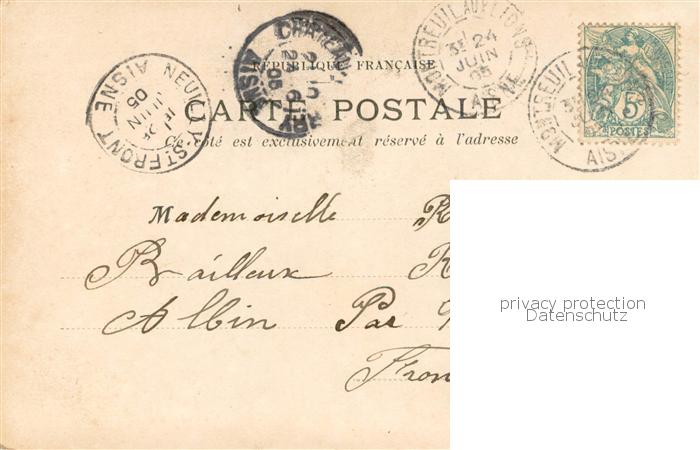 RÉPUBLIQUE FRANÇAISE
CARTE POSTALE
Ce côté est exclusivement réservé à l'adresse
NEUILLY ST FRONT
AISNE
JUIN
05
MONTREUIL AUX LIONS
3E 24
JUIN
05
AISNE
5c
POSTES
MONTREUIL
AIS
Mademoiselle R
Bailleux R
Albin Par N
Fron
privacy protection
Datenschutz